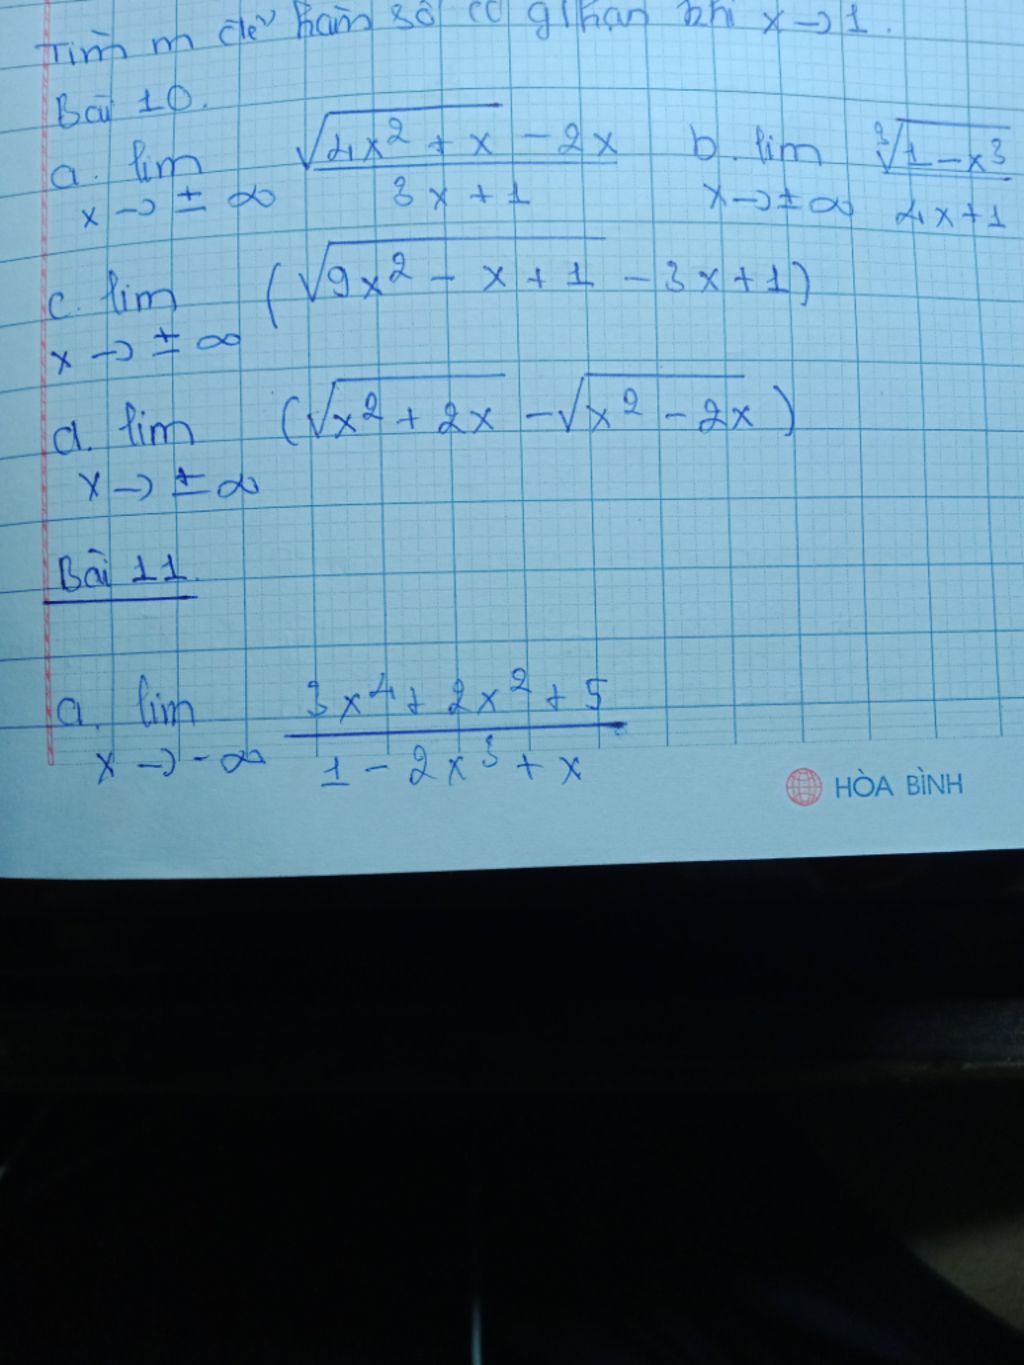 Tìm m để hàm số có g/hạn khi x → 1.
Bài 10.
a. lim x → ± ∞ (√(4x² + x) - 2x)/(3x + 1) b. lim x → ± ∞ ³√(1 - x³)/(4x + 1)
c. lim x → ± ∞ (√(9x² - x + 1) - 3x + 1)
d. lim x → ± ∞ (√(x² + 2x) - √(x² - 2x))
Bài 11.
a. lim x → - ∞ (3x⁴ + 2x² + 5)/(1 - 2x³ + x)
HÒA BÌNH